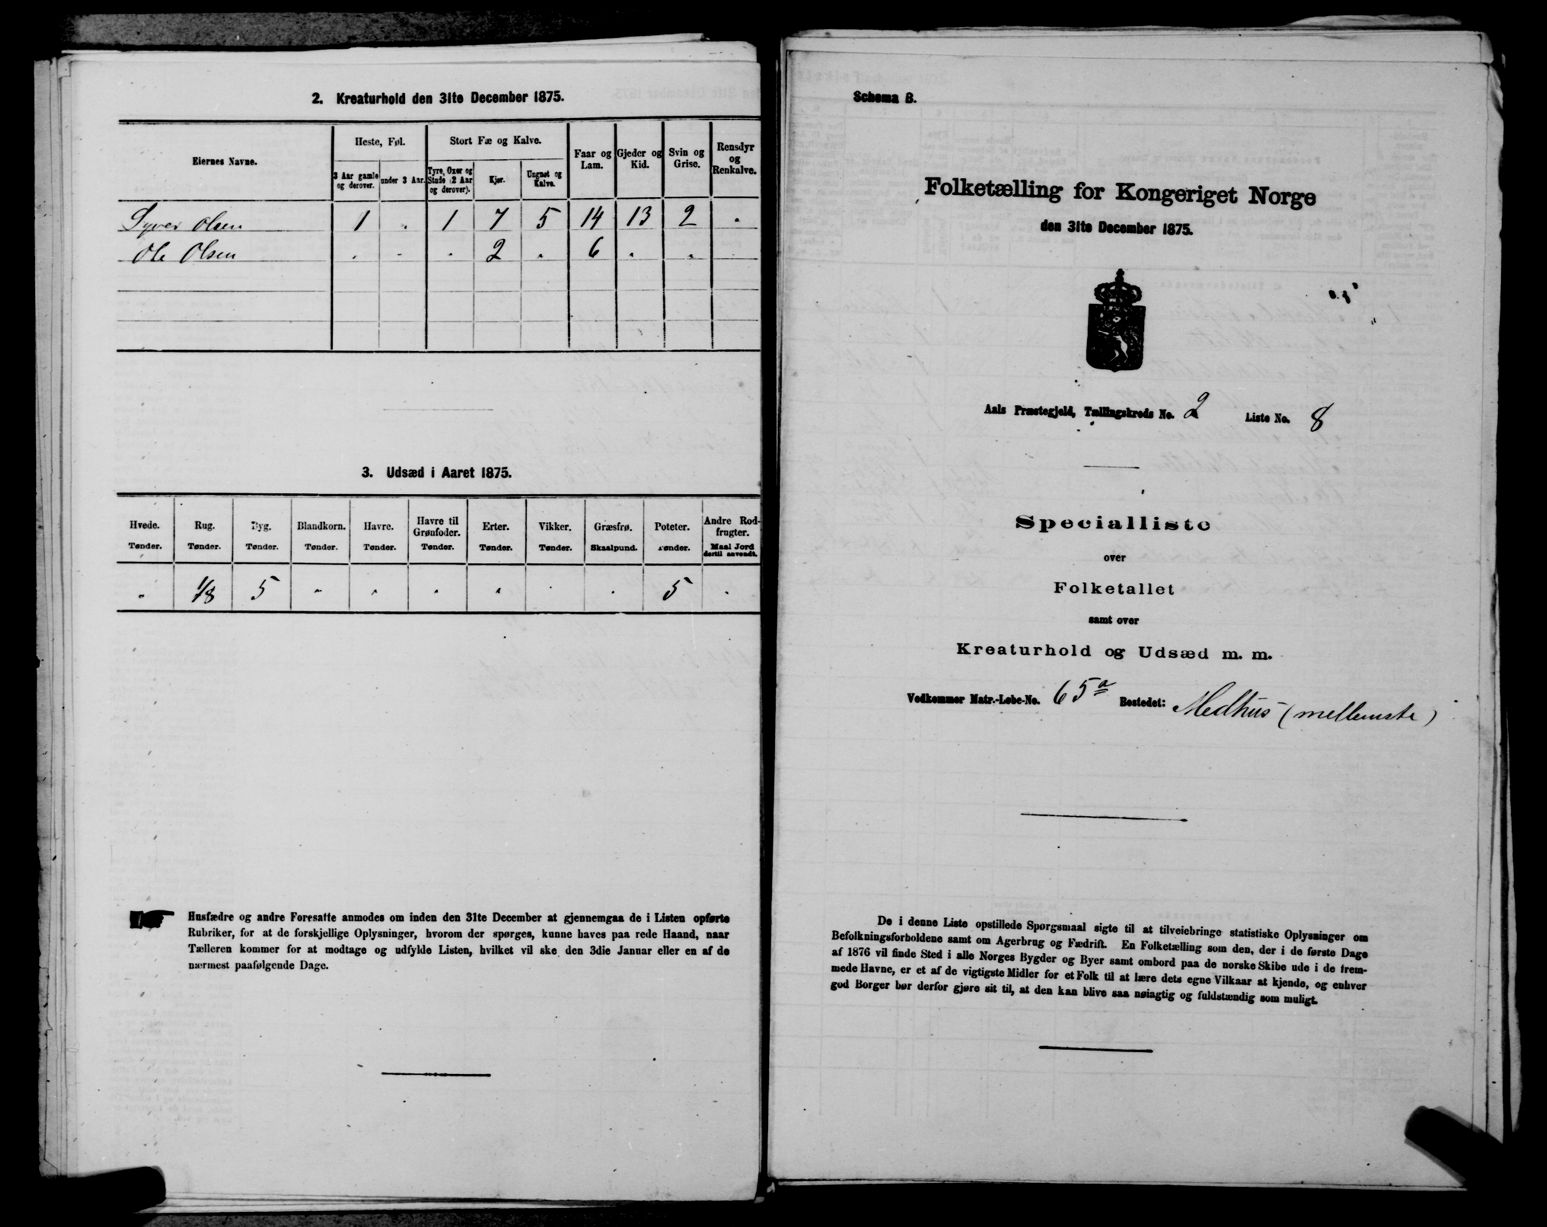 2. Kreaturhold den 31te December 1875.
Eiernes Navne. Heste, Føl. Stort Fæ og Kalve. Faar og Lam. Gjeder og Kid. Svin og Grise. Rensdyr og Renkalve.
3 Aar gamle og derover. under 3 Aar. Tyre, Oxer og Stude (2 Aar og derover). Kjør. Ungnøt og Kalve.
Syver Olsen 1 " 1 7 5 14 13 2 "
Ole Olsen " " " 2 " 6 " "
3. Udsæd i Aaret 1875.
Hvede. Rug. Byg. Blandkorn. Havre. Havre til Grønfoder. Erter. Vikker. Græsfrø. Poteter. Andre Rodfrugter.
Tønder. Tønder. Tønder. Tønder. Tønder. Tønder. Tønder. Tønder. Skaalpund. Tønder. Maal Jord dertil anvendt.
" 1/8 5 " " " " " " 5 "
Husfædre og andre Foresatte anmodes om inden den 31te December at gjennemgaa de i Listen opførte
Rubriker, for at de forskjellige Oplysninger, hvorom der spørges, kunne haves paa rede Haand, naar
Tælleren kommer for at modtage og udfylde Listen, hvilket vil ske den 3die Januar eller en af de
nærmest paafølgende Dage.
Schema B.
Folketælling for Kongeriget Norge
den 31te December 1875.
Aals Præstegjeld, Tællingskreds No. 2 Liste No. 8
Specialliste
over
Folketallet
samt over
Kreaturhold og Udsæd m. m.
Vedkommer Matr.-Løbe-No. 65a Bostedet: Medhus (mellemste)
De i denne Liste opstillede Spørgsmaal sigte til at tilveiebringe statistiske Oplysninger om
Befolkningsforholdene samt om Agerbrug og Fædrift. En Folketælling som den, der i de første Dage
af 1876 vil finde Sted i alle Norges Bygder og Byer samt ombord paa de norske Skibe ude i de frem-
mede Havne, er et af de vigtigste Midler for et Folk til at lære dets egne Vilkaar at kjende, og enhver
god Borger bør derfor gjøre sit til, at den kan blive saa nøiagtig og fuldstændig som muligt.